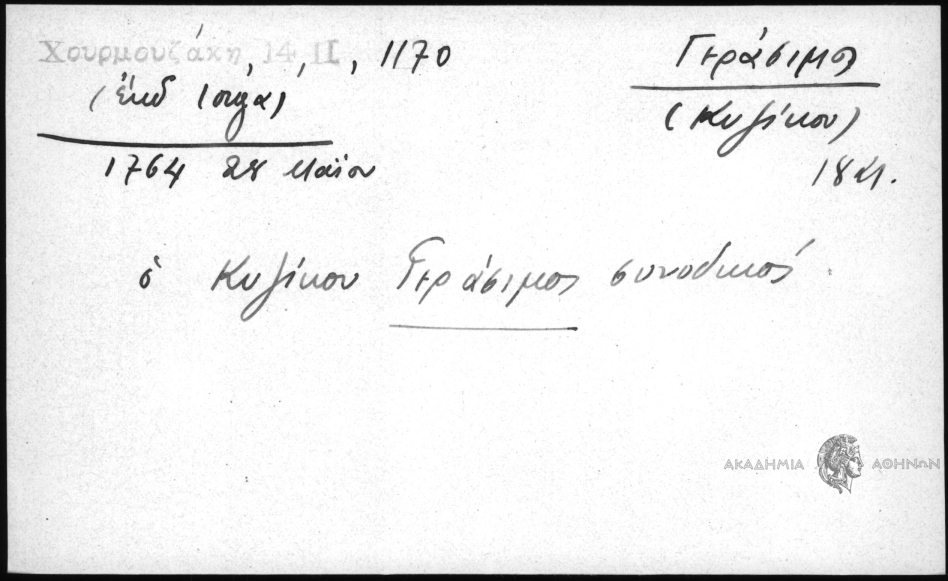 Χουρμουζάκη 14 II, 1170
Γεράσιμος
(ἔκδ Ἰόργα)
(Κυζίκου)
1764 28 Μαΐου
ὁ Κυζίκου Γεράσιμος συνοδικός.
ΑΚΑΔΗΜΙΑ ΑΘΗΝΩΝ